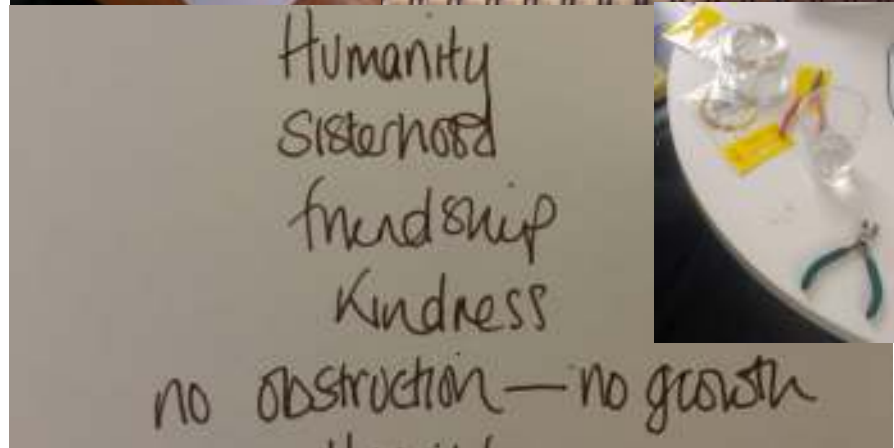 Humanity
Sisterhood
friendship
Kindness
no obstruction — no growth